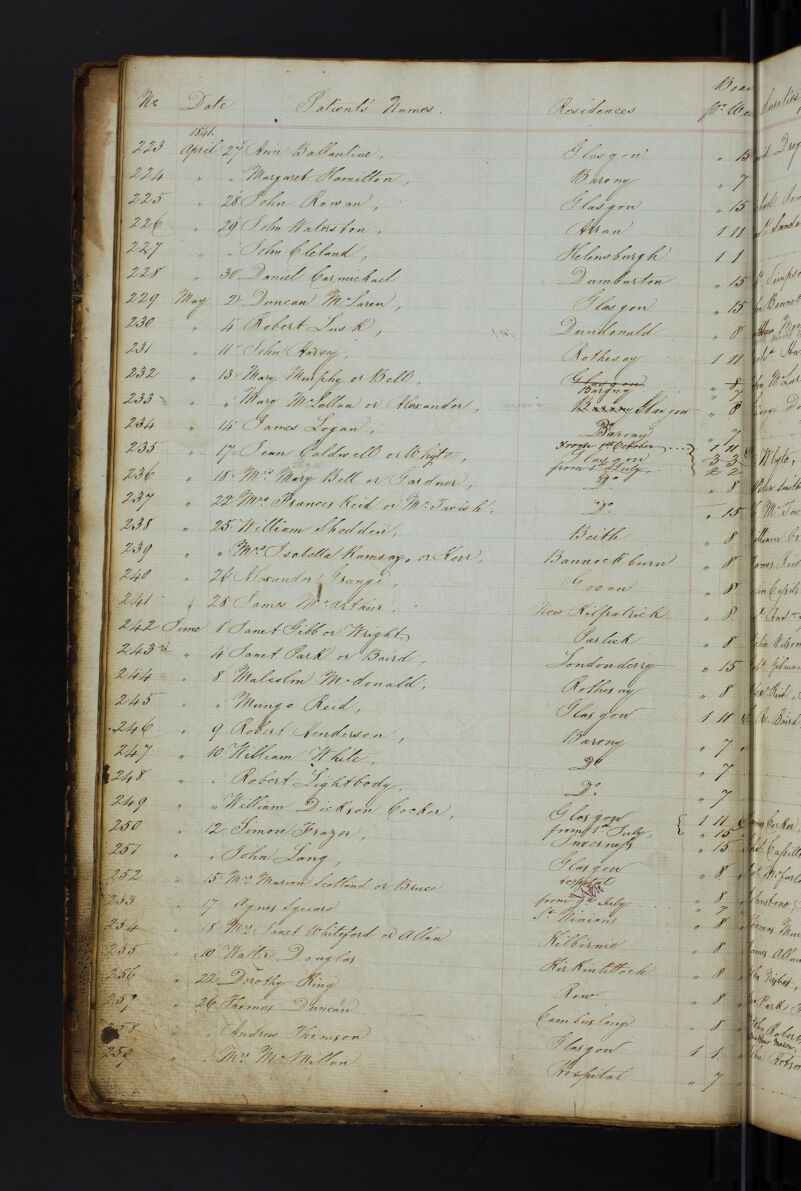 No Date Patients Names. Residences Boar pr. Wee
1841.
223 April 27 Ann Ballantine, Glasgow " 15
224 " " Margaret Hamilton, Barony " 7
225 " 28 John Rowan, Glasgow " 15
226 " 29 John Waterston, Arran 1 11
227 " " John Cleland, Helensburgh 1 1
228 " 30 Daniel Carmichael Dumbarton " 15
229 May 2 Duncan McLaren, Glasgow " 15
230 " 4 Robert Lusk, Dundonald " 8
231 " 11 John Harvey, Rothesay 1 11
232 " 13 Mary Murphy or Bell, Glasgow " 8
Barony " 7
233 " " Mary McLellan or Alexander, Glasgow " 8
234 " 14 James Logan, Barony " 7
from October 1 11
235 " 17 Jean Caldwell or Whyte, Glasgow 3 3
from 1st July 2 2
236 " 18 Mrs Mary Bell or Gardner, Do " 8
237 " 22 Mrs Frances Reid or McTavish, Do. " 15
238 " 25 William Shedden, Beith " 8
239 " " Mrs Isabella Ramsay, or Kerr, Bannockburn " 8
240 " 26 Alexander Grange, Govan " 8
241 " 28 James McArthur, New Kilpatrick " 8
242 June 1 Janet Gibb or Wright, Partick " 8
243 " 4 Janet Park or Baird, Londonderry " 15
244 " 8 Malcolm McDonald, Rothesay " 8
245 " " Mungo Reid, Glasgow 1 11
246 " 9 Robert Henderson, Barony " 7
247 " 10 William White, Do " 7
248 " " Robert Lightbody, Do. " 7
249 " " William Dickson Cocker, Glasgow 1 11
from 1st July, " 15
250 " 12 Simon Frazer, Inverness " 15
251 " " John Lang, Glasgow " 8
252 " 15 Mrs Marion Scotland or Bruce Hospital " 8
from 9th July " 7
253 " 17 Agnes Squard St Ninians " 8
254 " 18 Mrs Janet Whiteford or Allan Kilbirnie " 8
255 " 19 Walter Douglas Kirkintilloch " 8
256 " 22 Dorothy King Row " 8
257 " 26 Thomas Duncan Cambuslang " 8
258 " " Andrew Thomson Glasgow 1 1
259 " Mrs McMillan Hospital " 7